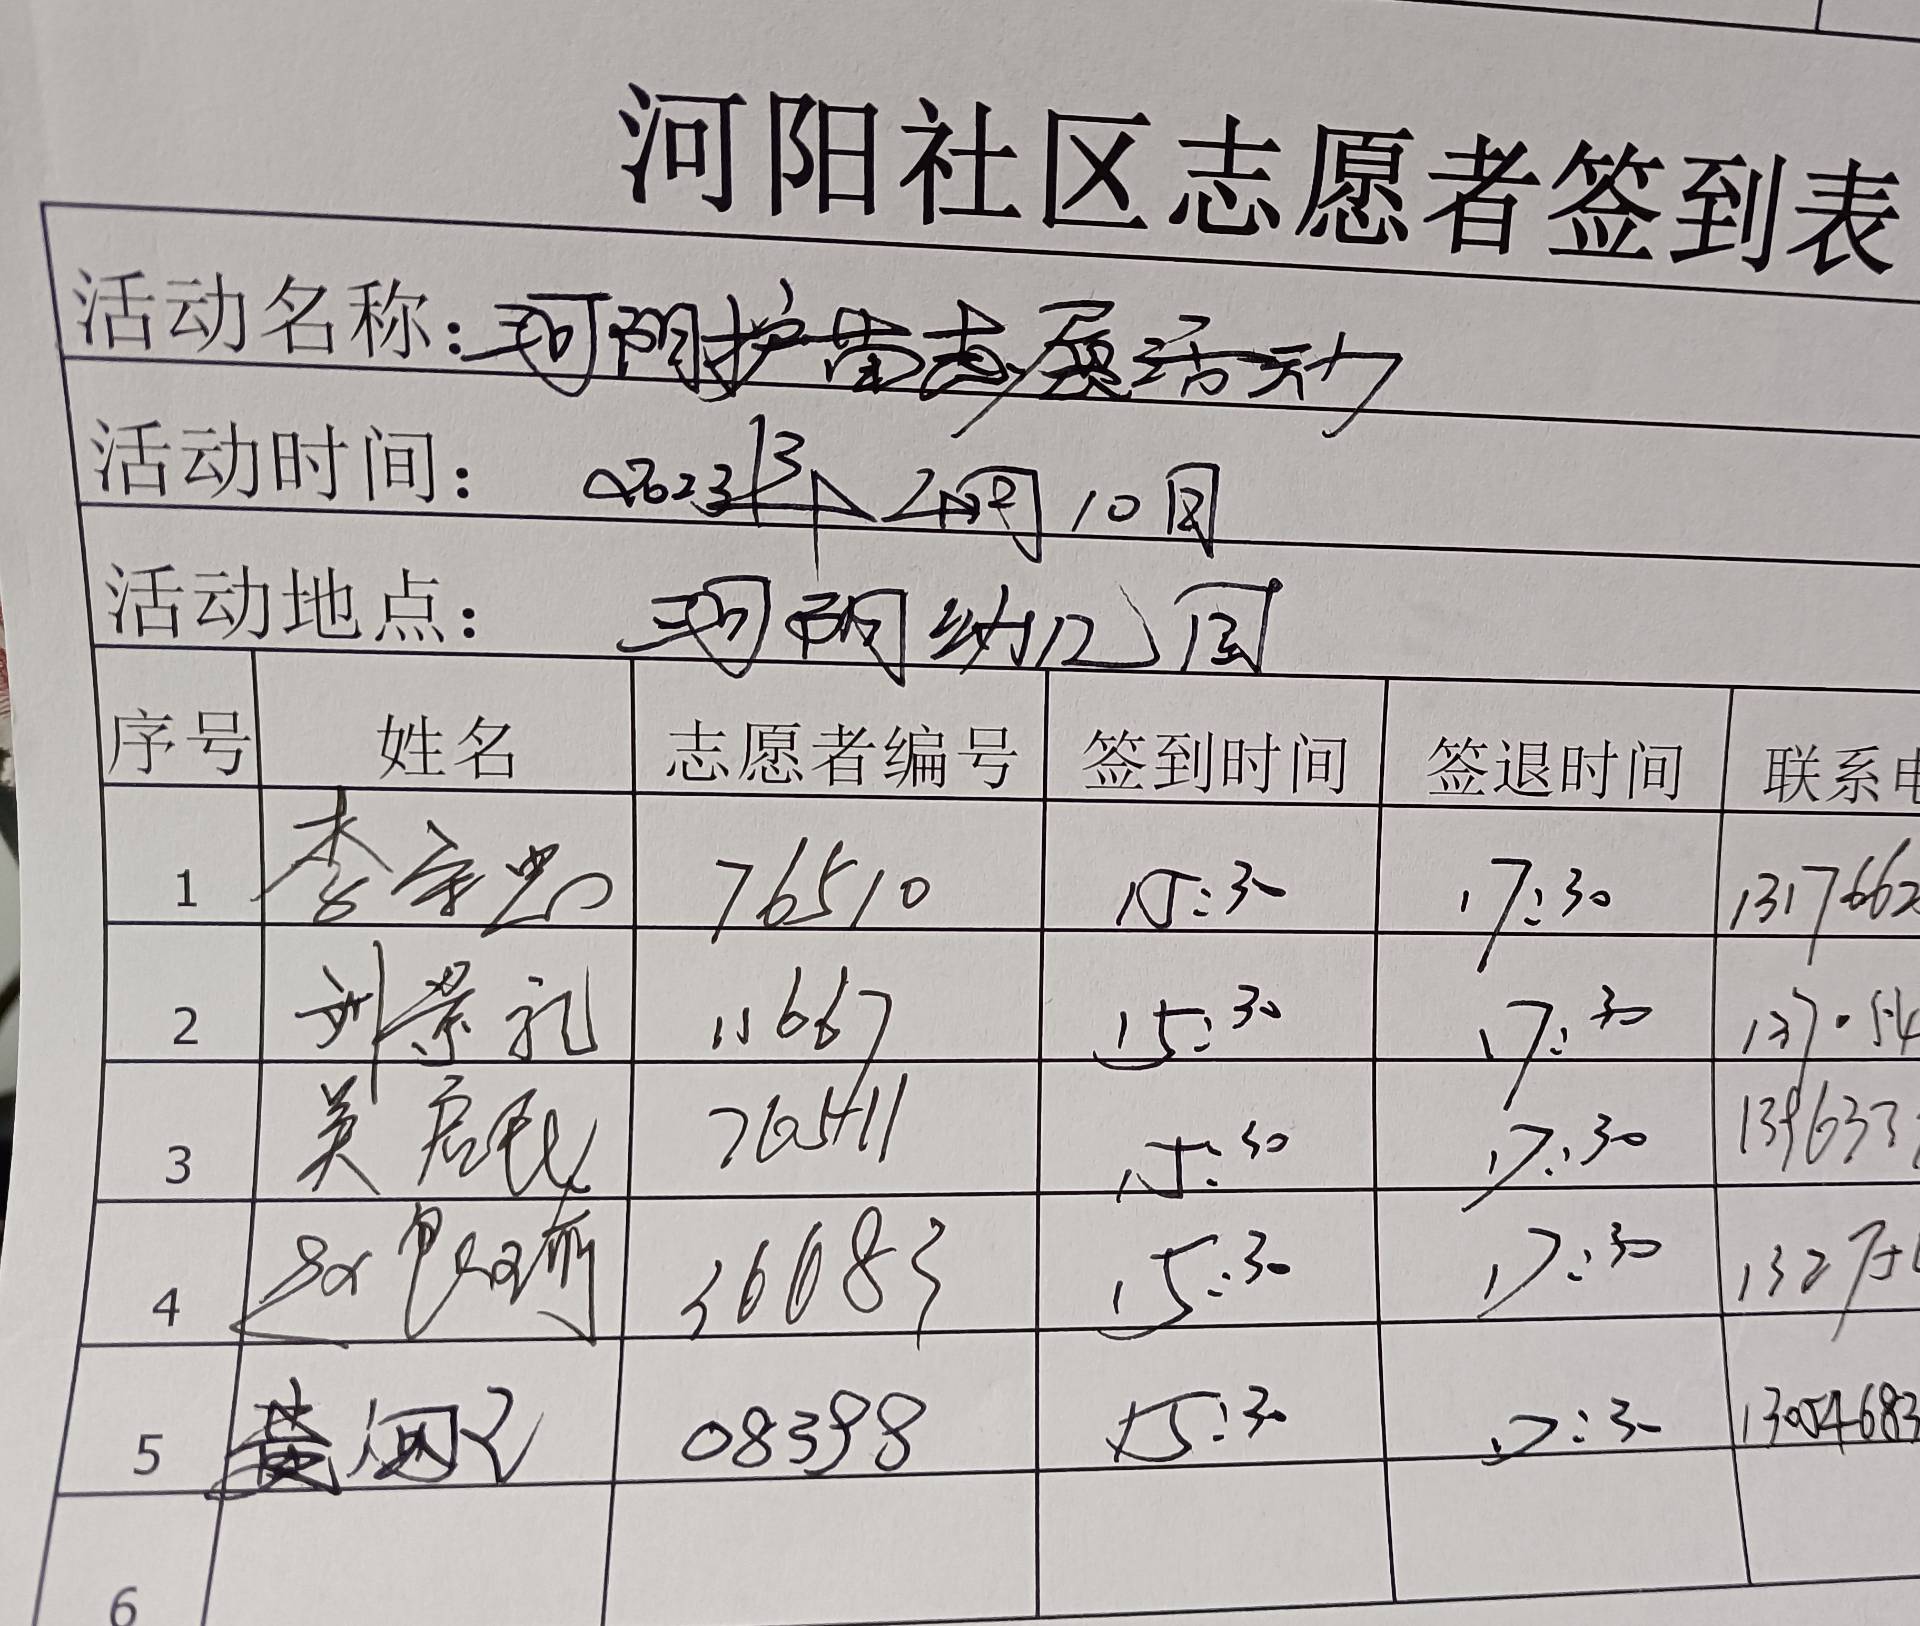 河阳社区志愿者签到表
活动名称：河阳护苗志愿活动
活动时间： 2023年 2月10日
活动地点： 河阳幼儿园
序号 姓名 志愿者编号 签到时间 签退时间 联系电
1 李宗忠 76510 15:30 17:30 1317662
2 刘景礼 11667 15:30 17:30 137054
3 吴启民 76511 15:30 17:30 139633
4 36683 15:30 17:30 13275
5 黄 08398 15:30 17:30 13054683
6